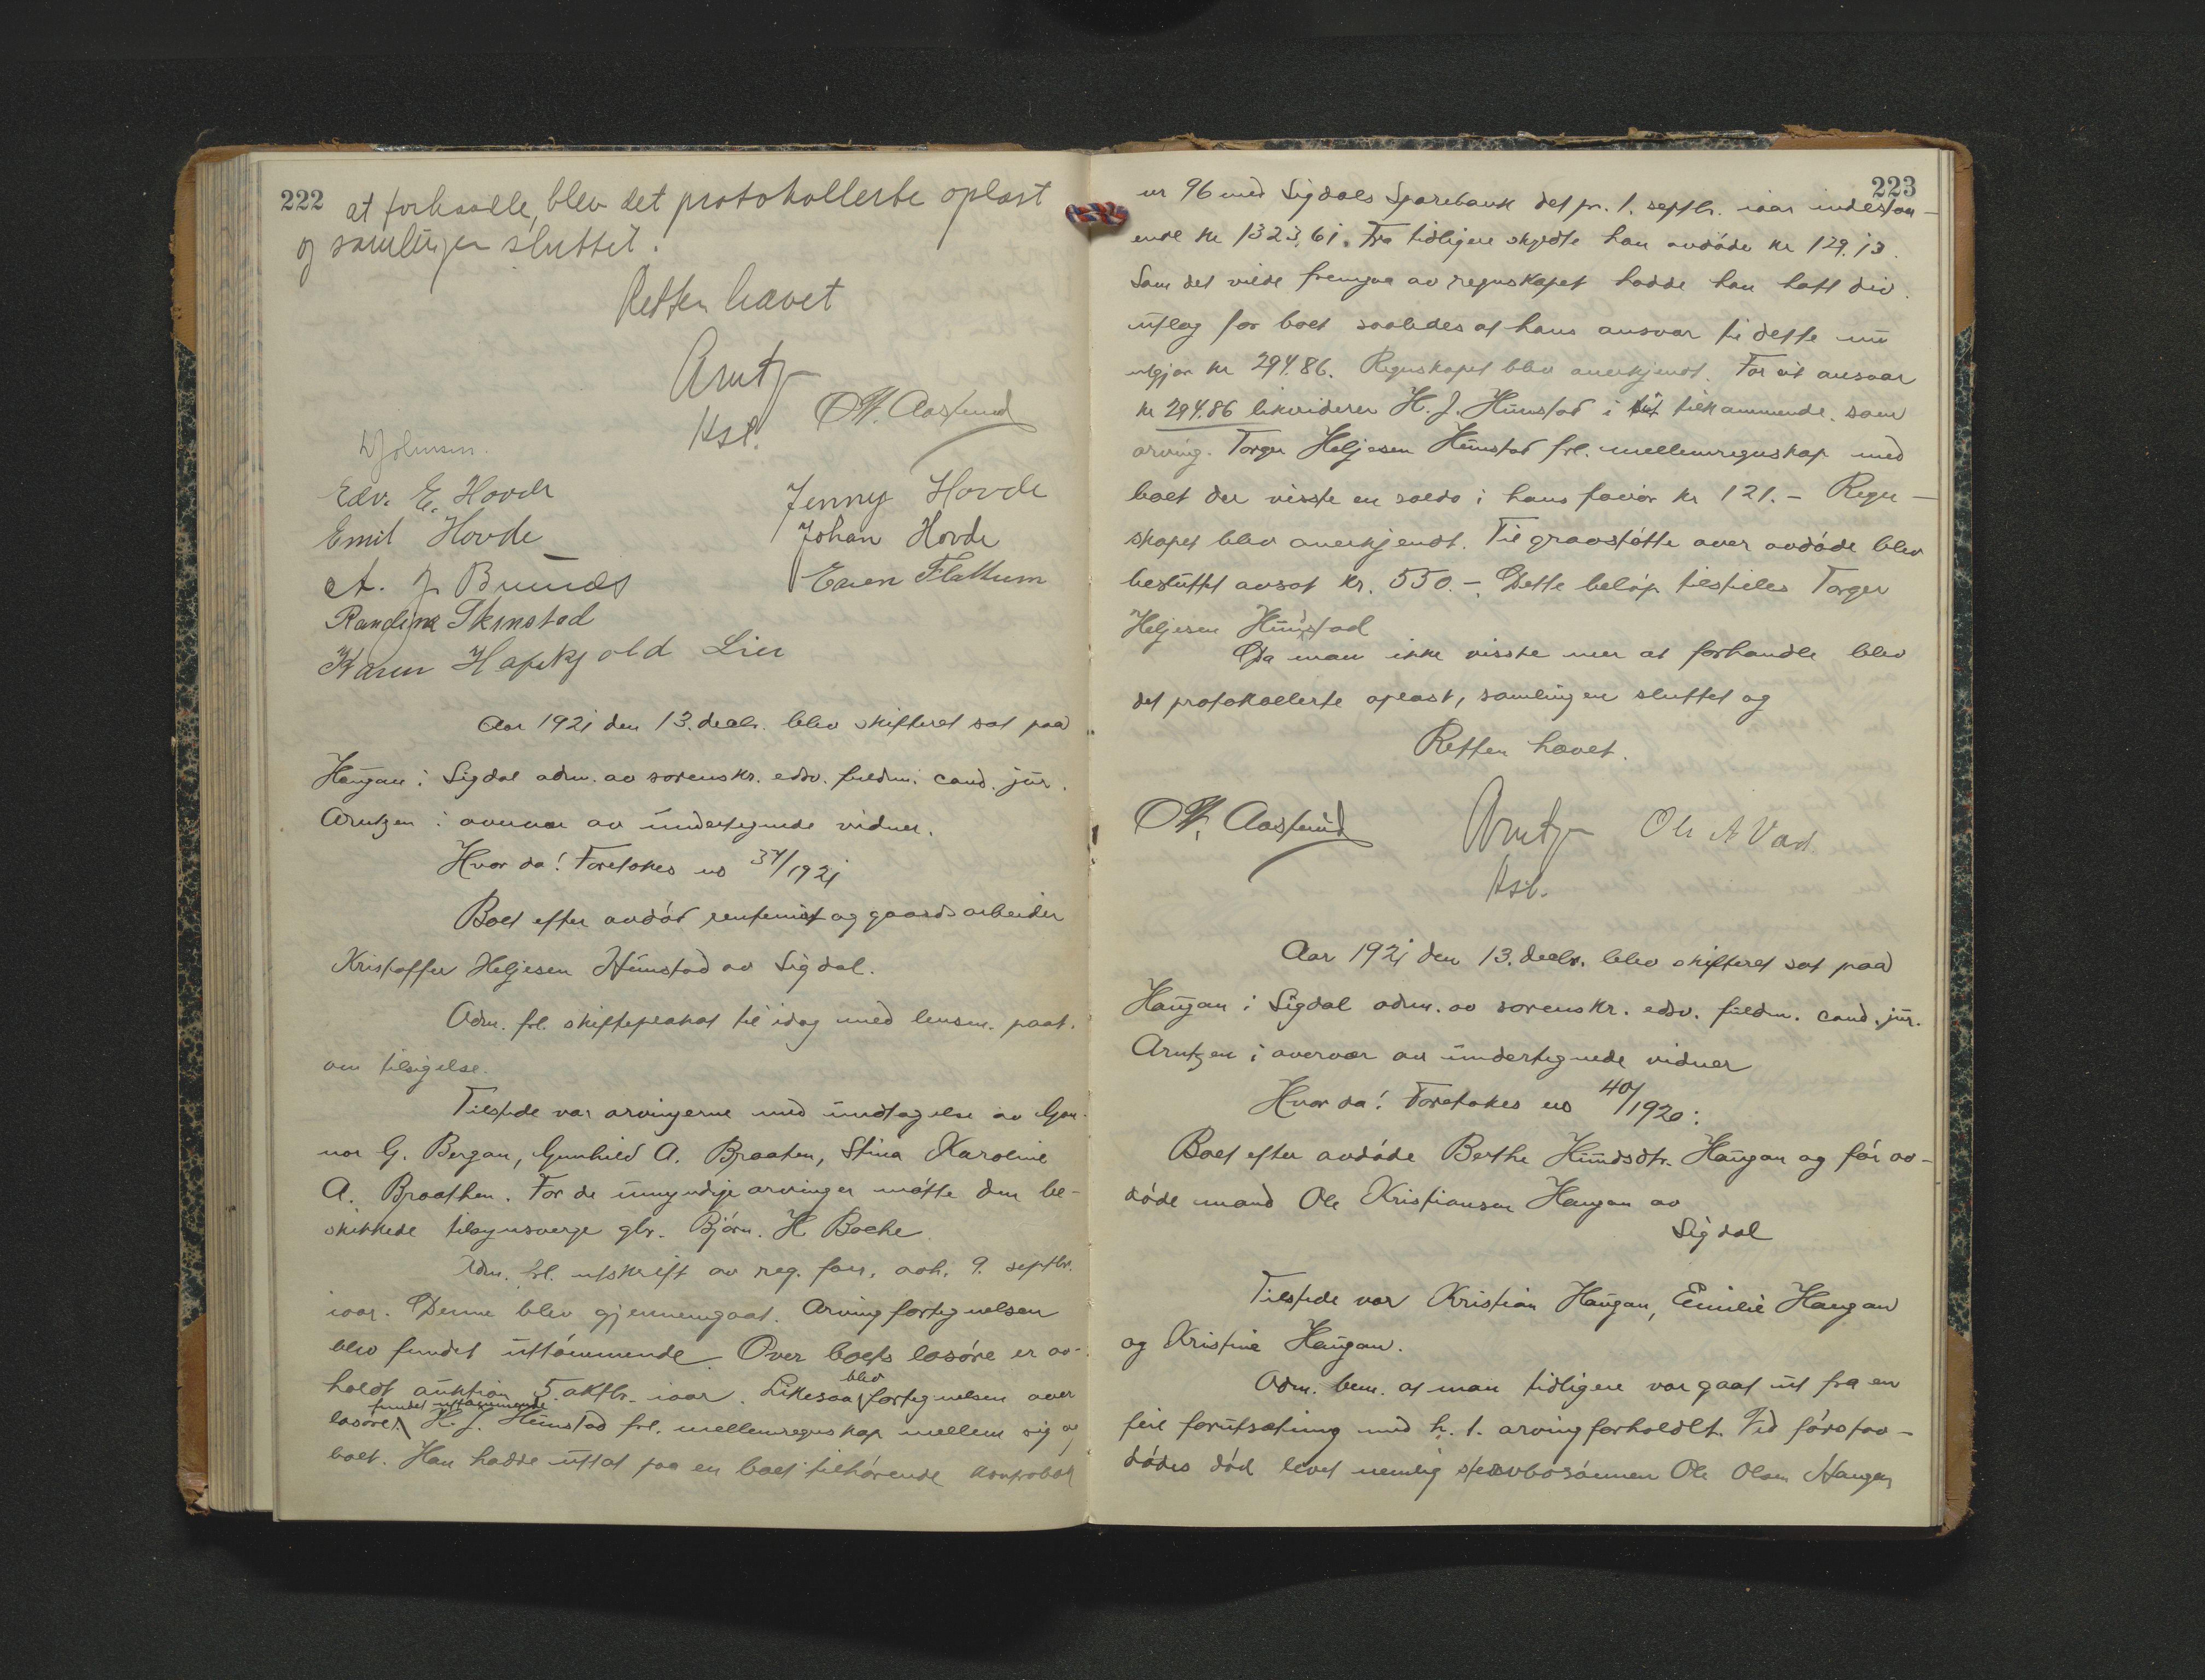 222
at forhandle, blev det protokollerte oplæst
og samlingen sluttet.
Retten hævet
Arntz
Kst.
O. Aaslund
Edv. E. Hovde
Emil Hovde
A. J. Brunæs
Randine Skinstad
Karen Lien
Jenny Hovde
Johan Hovde
Even Flattum
Aar 1921 den 13. decbr. blev skifteret sat paa
Haugan i Sigdal adm. av sorenskr. edsv. fuldm. cand. jur.
Arntzen i overvær av undertegnede vidner.
Hvor da! Foretokes no 37/1921
Boet efter avdød rentenist og gaardsarbeider
Kristoffer Heljesen Hunstad av Sigdal.
Adm. frl. skifteplakat til idag med lensm. paat.
om tilsigelse.
Tilstede var arvingerne med undtagelse av Gun-
nor G. Bergan, Gunhild A. Braaten, Stina Karoline
A. Braathen. For de umyndige arvinger møtte den be-
skikkede tilsynsverge gbr. Bjørn. H. Bache.
Adm. frl. utskrift av reg. forr. avh. 9. septbr.
iaar. Denne blev gjennemgaat. Arvingfortegnelsen
blev fundet uttømmende. Over boets løsøre er av-
holdt auktion 5. oktbr. iaar. Likesaa blev fortegnelsen over
løsøre fundet uttømmende. H. J. Hunstad frl. mellemregnskap mellem sig og
boet. Han hadde uttat paa en boet tilhørende kontrabok
223
nr 96 med Sigdals Sparebank det pr. 1. septbr. iaar indestaa-
ende kr 1323,61. Fra tidligere skyldte han avdøde kr 129.13.
Som det vilde fremgaa av regnskapet hadde han hatt div.
utlæg for boet saaledes at hans ansvar til dette nu
utgjør kr 294.86. Regnskapet blev anerkjendt. For sit ansvar
kr 294.86 likviderer H. J. Hunstad i sit tilkommende som
arving. Torger Heljesen Hunstad frl. mellemregnskap med
boet der visste en saldo i hans favør kr 121.- Regn-
skapet blev anerkjendt. Til gravstøtte over avdøde blev
besluttet avsat kr. 550.- Dette beløp tilstilles Torger
Heljesen Hunstad
Da man ikke visste mer at forhandle blev
det protokollerte oplæst, samlingen sluttet og
Retten hævet.
O. Aaslund
Arntz
Kst.
Ole A Vad.
Aar 1921 den 13. decbr. blev skifteret sat paa
Haugan i Sigdal adm. av sorenskr. edsv. fuldm. cand. jur.
Arntzen i overvær av undertegnede vidner
Hvor da! Foretokes no 40/1920:
Boet efter avdøde Berthe Knudsdtr. Haugan og før av-
døde mand Ole Kristiansen Haugan av
Sigdal
Tilstede var Kristian Haugan, Emilie Haugan
og Kristine Haugan.
Adm. bem. at man tidligere var gaat ut fra en
feil forutsætning med h. t. arvingforholdet. Ved førstav-
dødes død levet nemlig stervbosønnen Ole Olsen Haugan